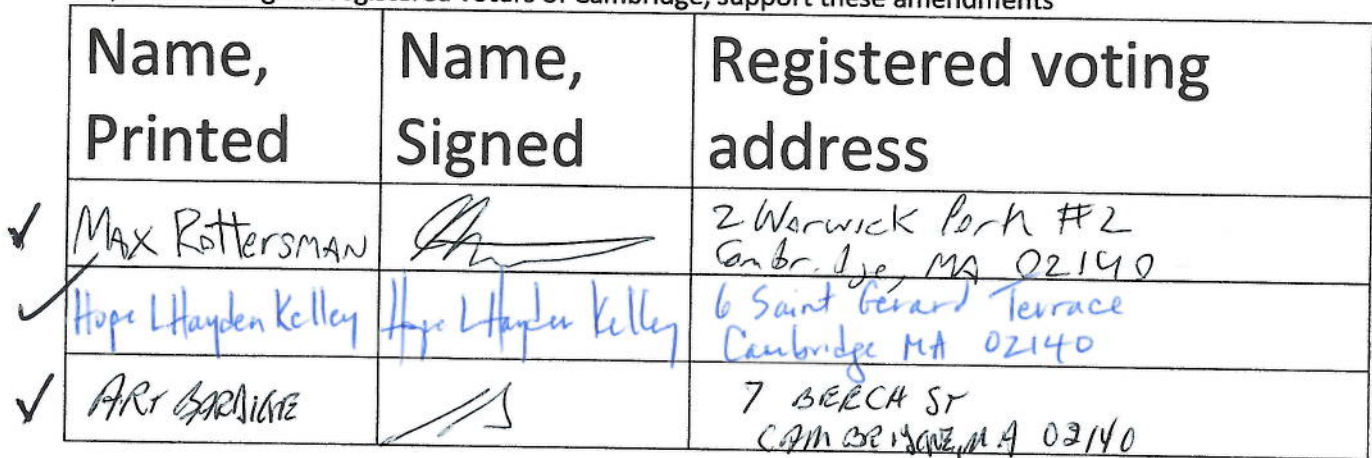 registered voters of Cambridge, support these amendments
Name, Printed
Name, Signed
Registered voting address
Max Rottersman
2 Warwick Park #2
Cambridge, MA 02140
Hope L Hayden Kelley
Hope L Hayden Kelley
6 Saint Gerard Terrace
Cambridge MA 02140
ART
7 BEECH ST
CAMBRIDGE, MA 02140